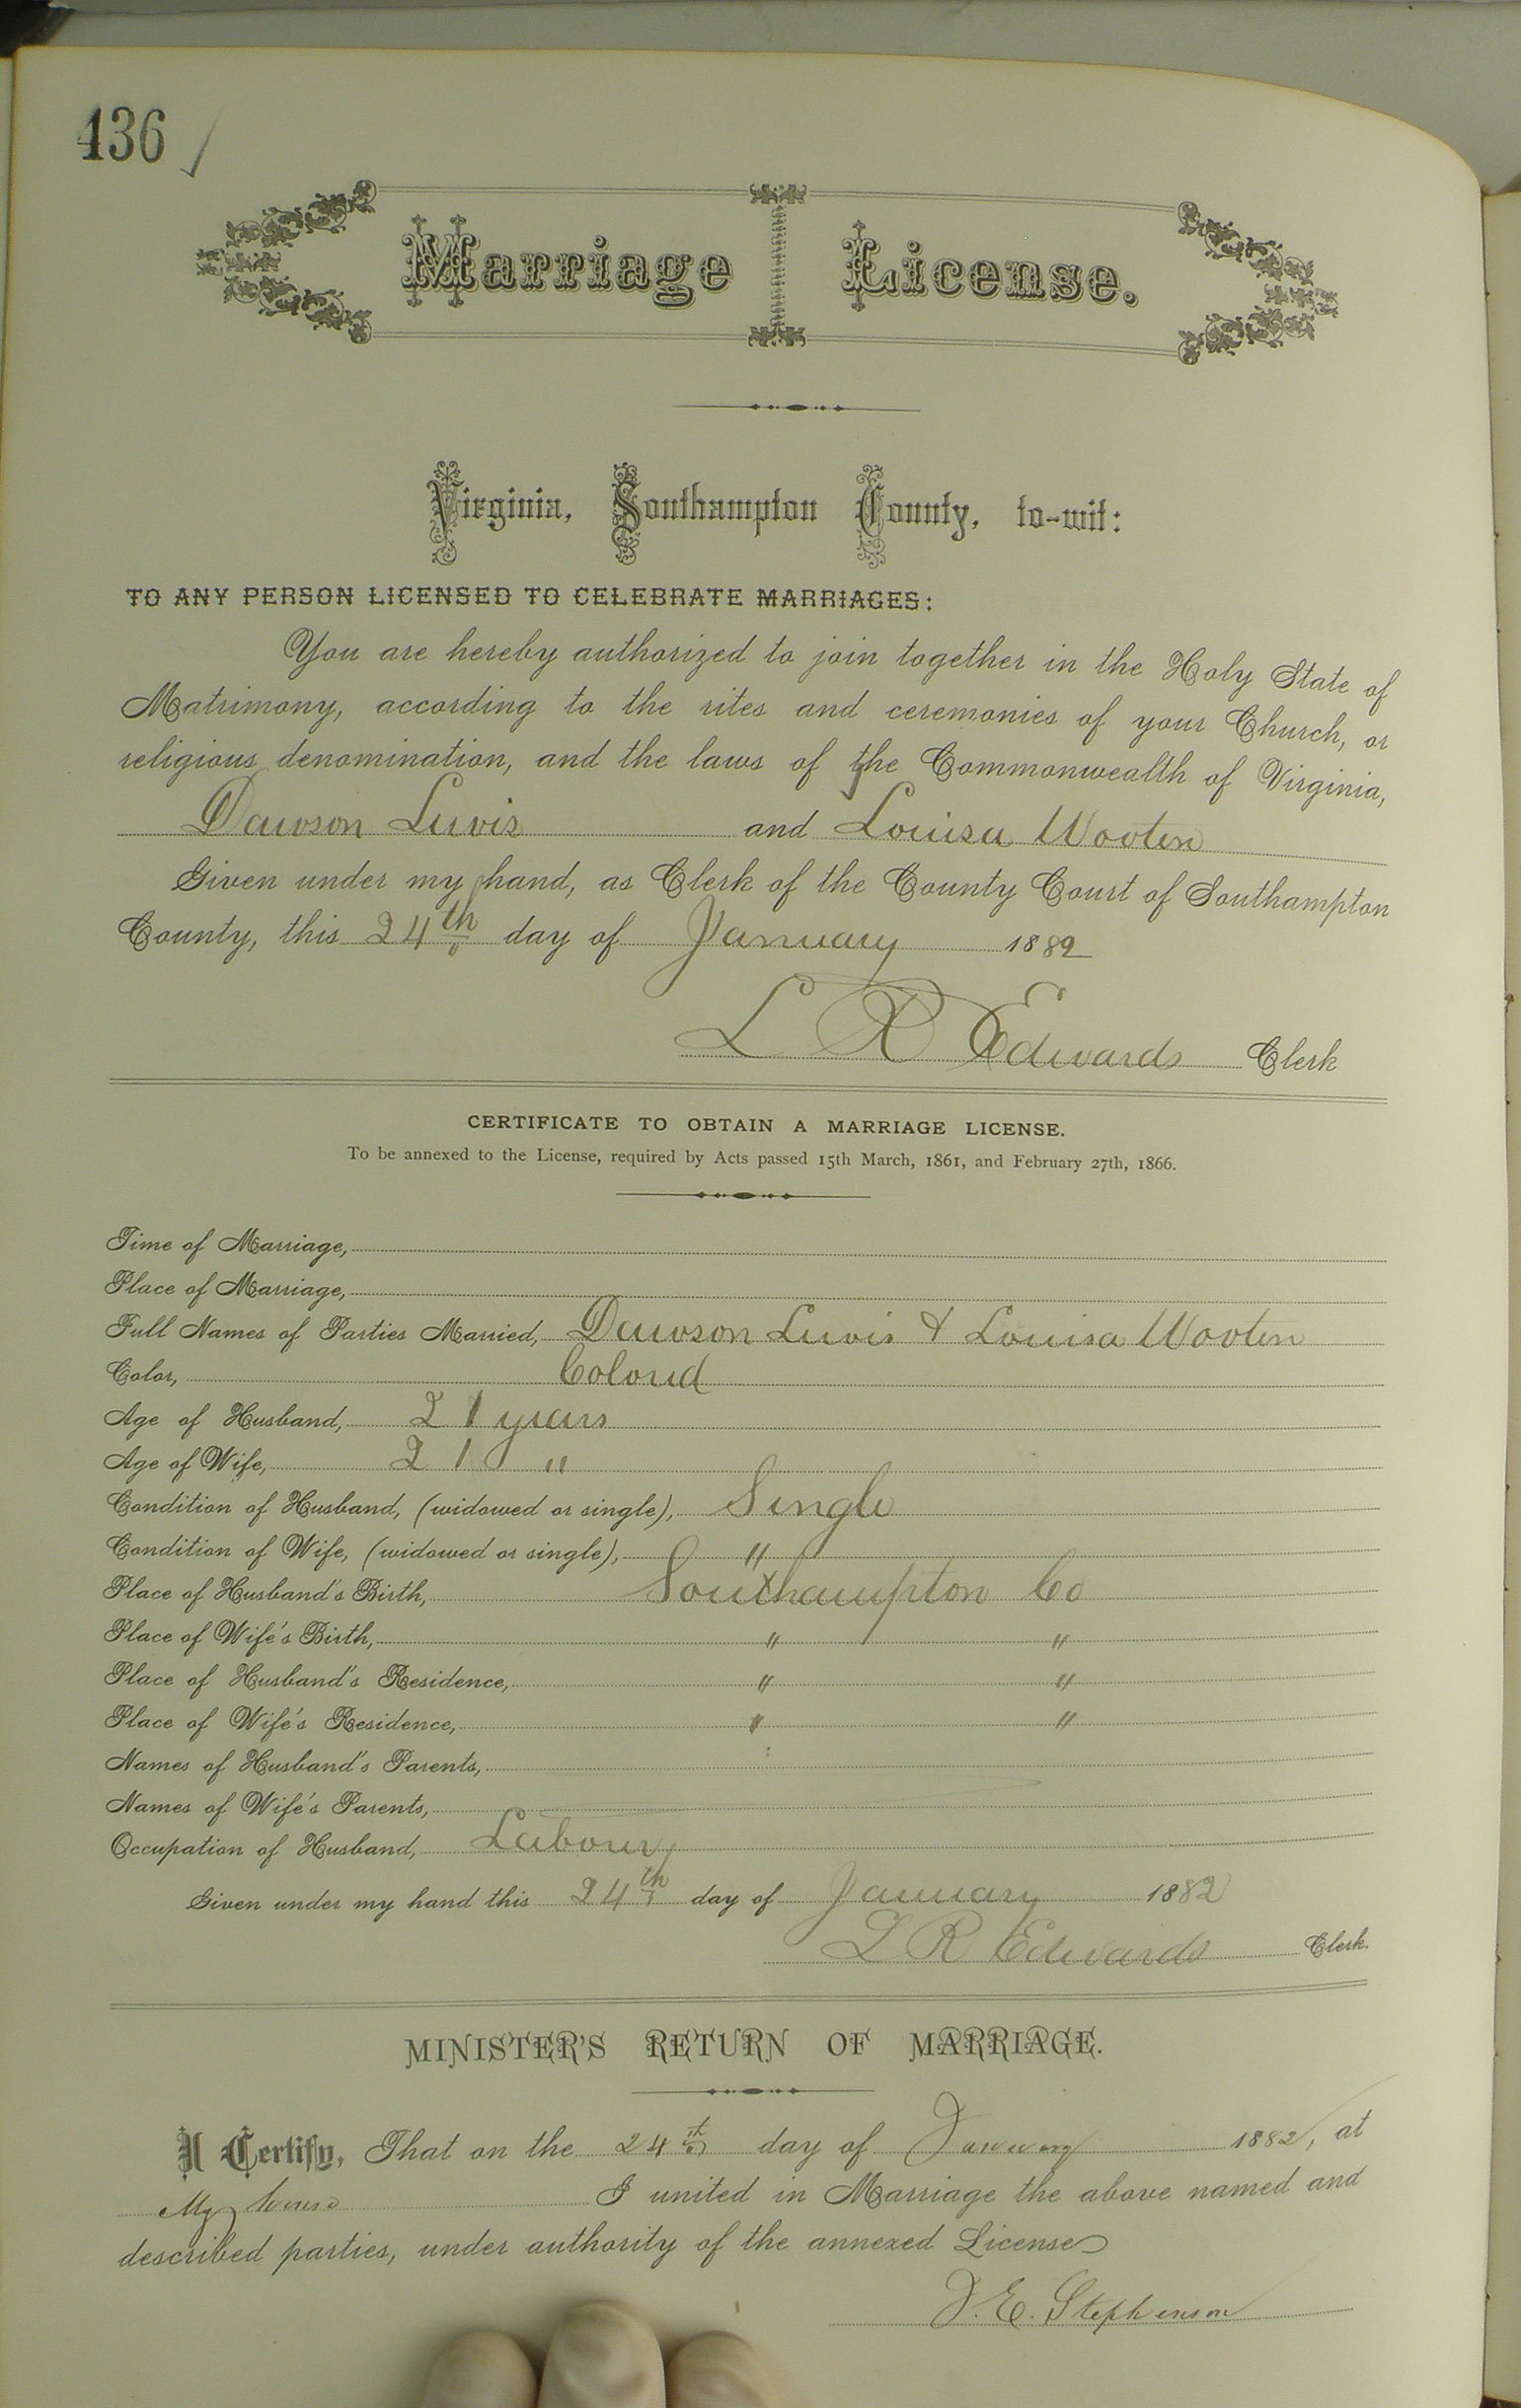 436
Marriage License.
Virginia, Southampton County, to-wit:
TO ANY PERSON LICENSED TO CELEBRATE MARRIAGES:
You are hereby authorized to join together in the Holy State of
Matrimony, according to the rites and ceremonies of your Church, or
religious denomination, and the laws of the Commonwealth of Virginia,
Dawson Luvis and Louisa Wooten
Given under my hand, as Clerk of the County Court of Southampton
County, this 24th day of January 1882
L R Edwards Clerk
CERTIFICATE TO OBTAIN A MARRIAGE LICENSE.
To be annexed to the License, required by Acts passed 15th March, 1861, and February 27th, 1866.
Time of Marriage,
Place of Marriage,
Full Names of Parties Married, Dawson Luvis & Louisa Wooten
Color, Colord
Age of Husband, 21 years
Age of Wife, 21 "
Condition of Husband, (widowed or single), Single
Condition of Wife, (widowed or single), "
Place of Husband's Birth, Southampton Co
Place of Wife's Birth, " "
Place of Husband's Residence, " "
Place of Wife's Residence, " "
Names of Husband's Parents,
Names of Wife's Parents,
Occupation of Husband,
Given under my hand this 24th day of January 1882
L R Edwards Clerk.
MINISTER'S RETURN OF MARRIAGE.
I Certify, That on the 24th day of January 1882, at
My house I united in Marriage the above named and
described parties, under authority of the annexed License
J. E. Stephenson